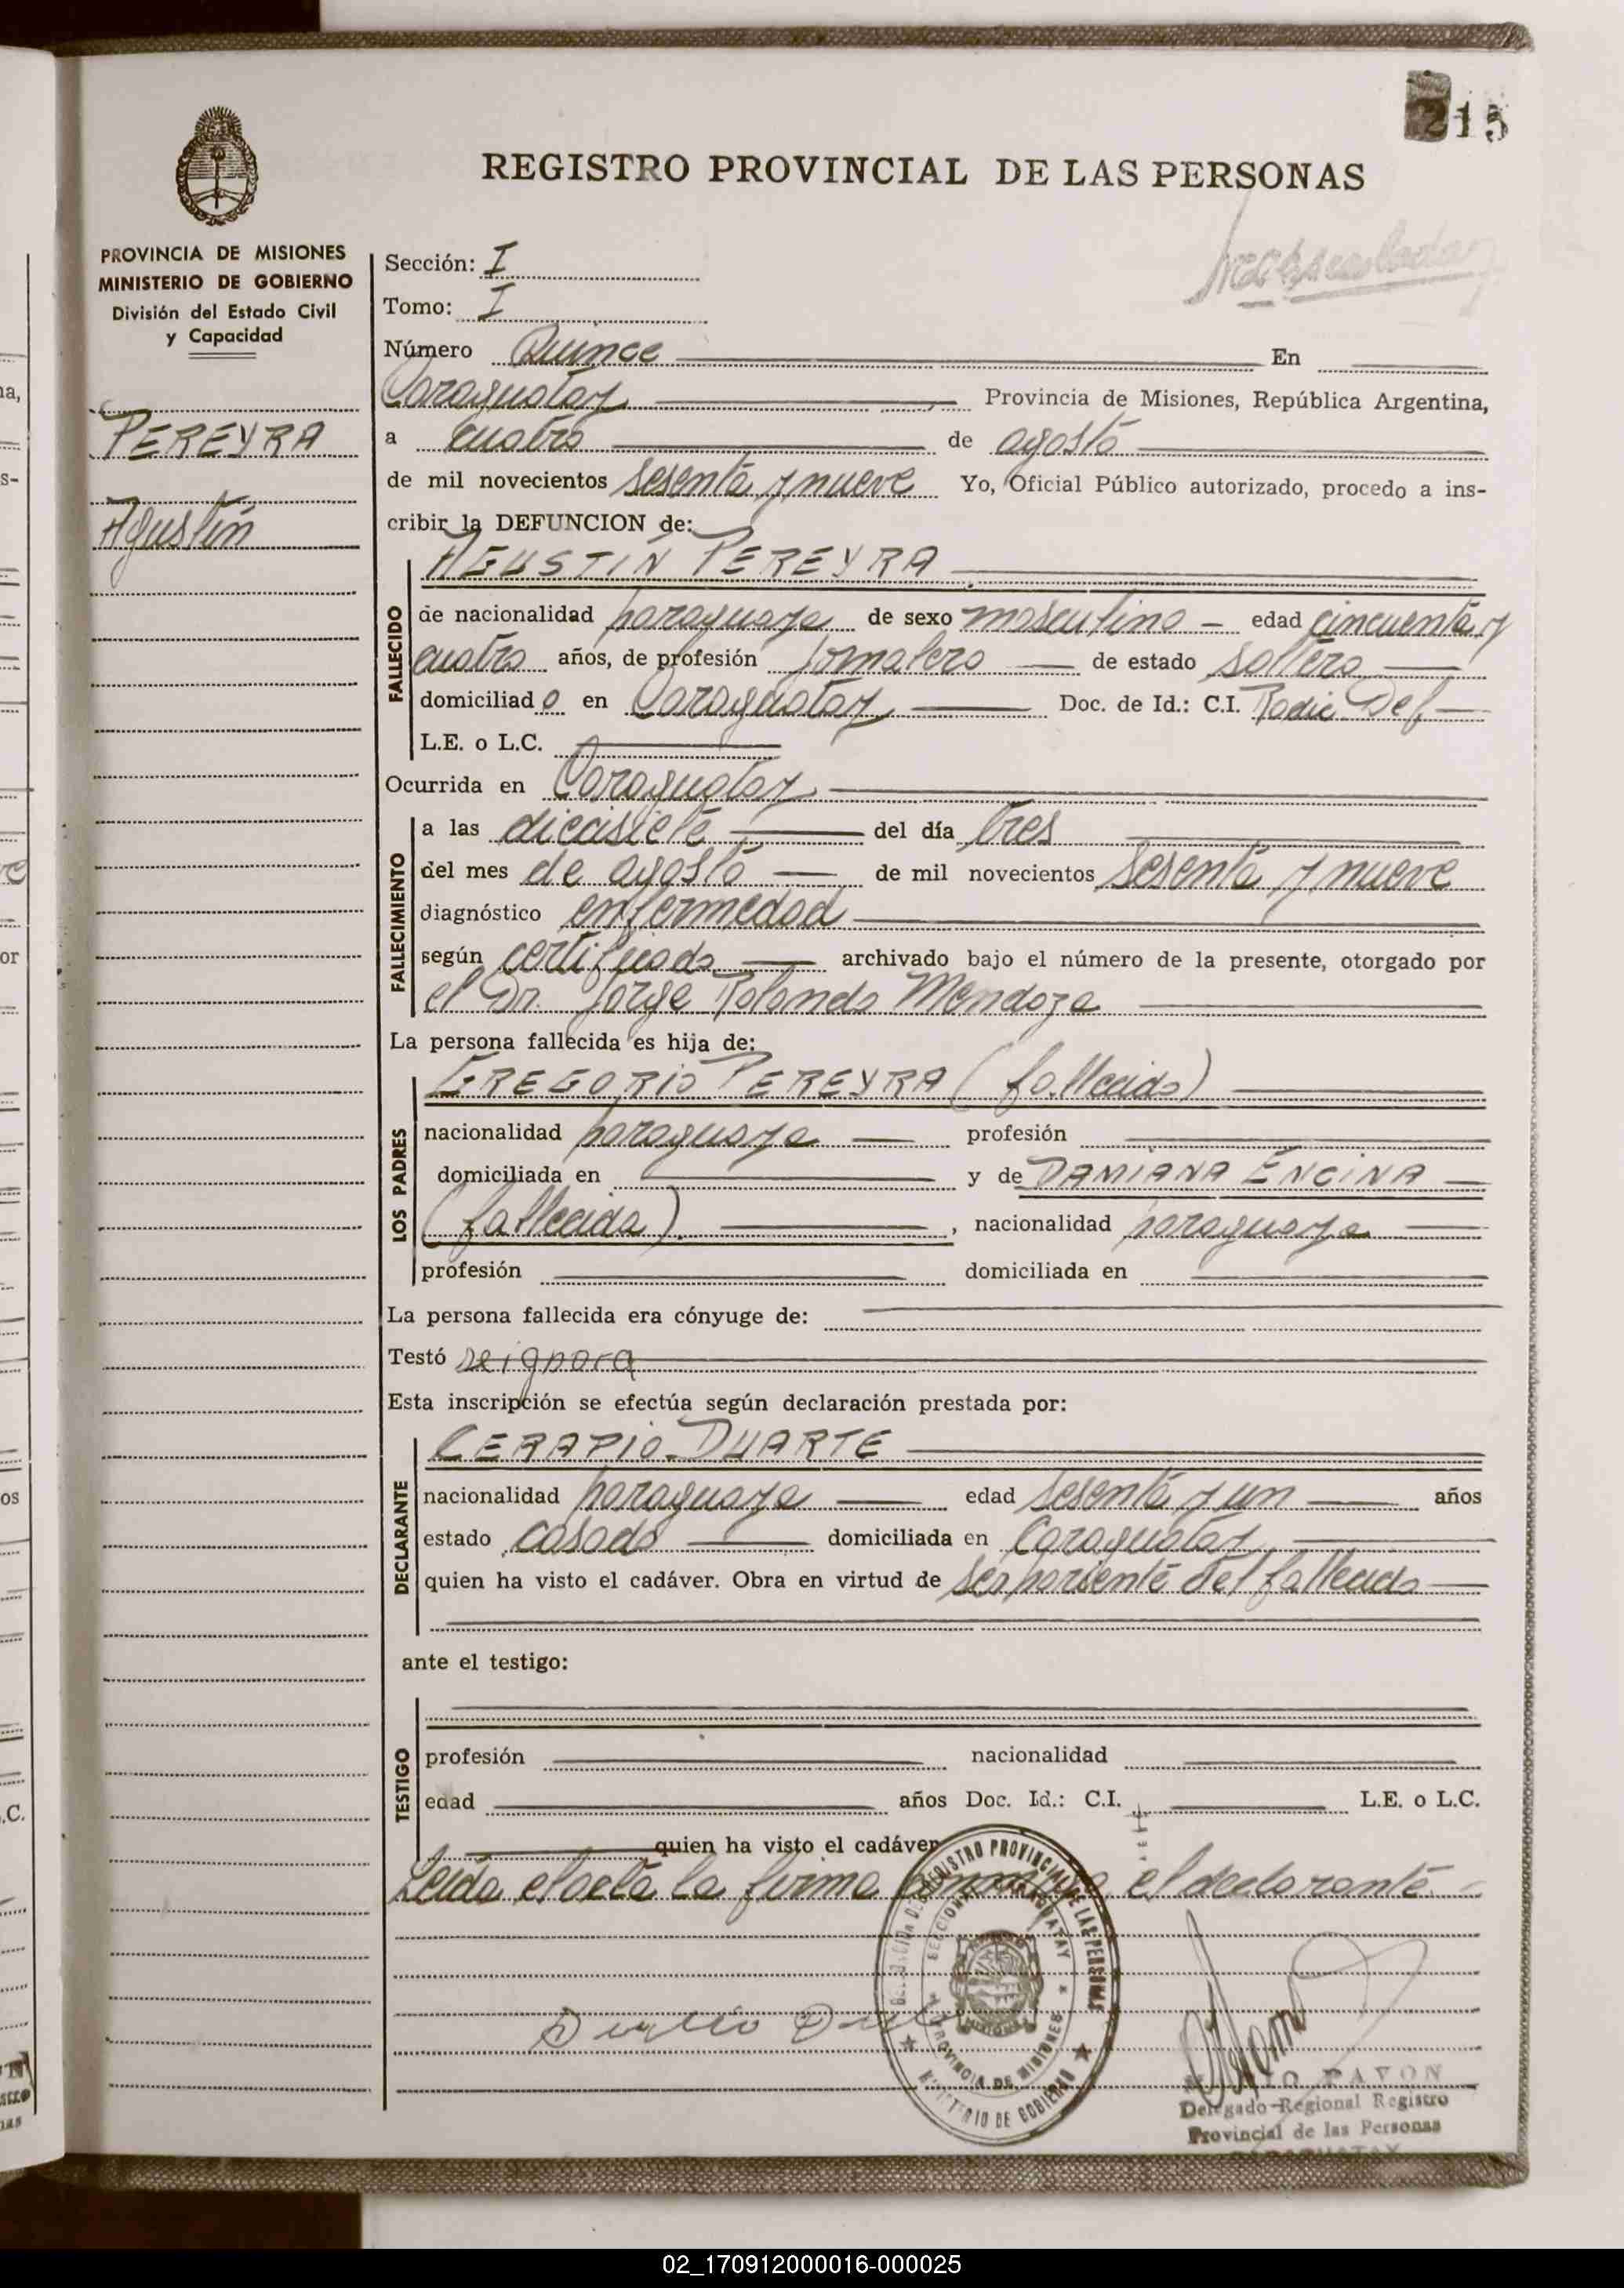 215
REGISTRO PROVINCIAL DE LAS PERSONAS
PROVINCIA DE MISIONES
MINISTERIO DE GOBIERNO
División del Estado Civil
y Capacidad
PEREYRA
Agustín
Sección: I
Tomo: I
Número Quince En
Caraguatay Provincia de Misiones, República Argentina,
a cuatro de agosto
de mil novecientos sesenta y nueve Yo, Oficial Público autorizado, procedo a ins-
cribir la DEFUNCION de:
AGUSTIN PEREYRA
FALLECIDO
de nacionalidad paraguaya de sexo masculino edad cincuenta y
cuatro años, de profesión Jornalero de estado soltero
domiciliado en Caraguatay Doc. de Id.: C.I. Radic Def
L.E. o L.C.
Ocurrida en Caraguatay
FALLECIMIENTO
a las diecisiete del día tres
del mes de agosto de mil novecientos sesenta y nueve
diagnóstico enfermedad
según certificado archivado bajo el número de la presente, otorgado por
el Dr. Jorge Rolando Mendoza
La persona fallecida es hija de:
LOS PADRES
GREGORIO PEREYRA (fallecido)
nacionalidad paraguaya profesión
domiciliada en y de DAMIANA ENCINA
(fallecida) , nacionalidad paraguaya
profesión domiciliada en
La persona fallecida era cónyuge de:
Testó se ignora
Esta inscripción se efectúa según declaración prestada por:
DECLARANTE
CERAPIO DUARTE
nacionalidad paraguaya edad sesenta y un años
estado casado domiciliada en Caraguatay
quien ha visto el cadáver. Obra en virtud de ser pariente del fallecido
ante el testigo:
TESTIGO
profesión nacionalidad
edad años Doc. Id.: C.I. L.E. o L.C.
quien ha visto el cadáver
Leida el acta la firma conmigo el declarante
REGISTRO PROVINCIAL DE LAS PERSONAS
CARAGUATAY
PROVINCIA DE MISIONES
MINISTERIO DE GOBIERNO
PAVON
Delegado Regional Registro
Provincial de las Personas
CARAGUATAY
02_170912000016-000025